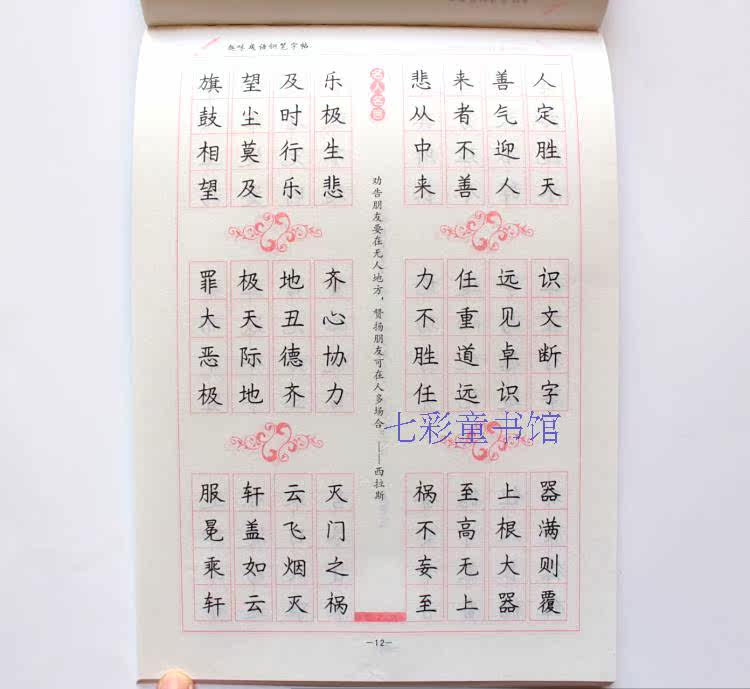 趣味成语钢笔字帖
旗鼓相望
望尘莫及
及时行乐
乐极生悲
悲从中来
来者不善
善气迎人
人定胜天
罪大恶极
极天际地
地丑德齐
齐心协力
力不胜任
任重道远
远见卓识
识文断字
服冕乘轩
轩盖如云
云飞烟灭
灭门之祸
祸不妄至
至高无上
上根大器
器满则覆
名人名言
劝告朋友要在无人地方，赞扬朋友可在人多场合。——西拉斯
七彩童书馆
—12—